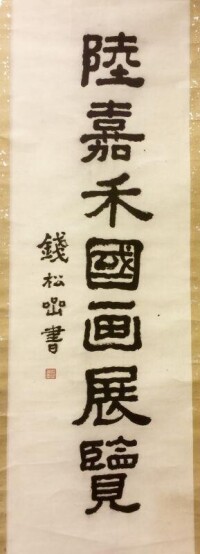 陸嘉禾國画展覽
錢松喦書